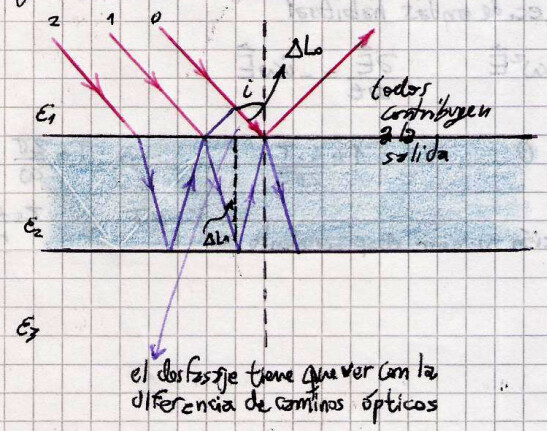 2 1 0
ΔL₀
i
ε₁
todos
contribuyen
a la
salida
ΔL₁
ε₂
ε₃
el desfasaje tiene que ver con la
diferencia de caminos ópticos